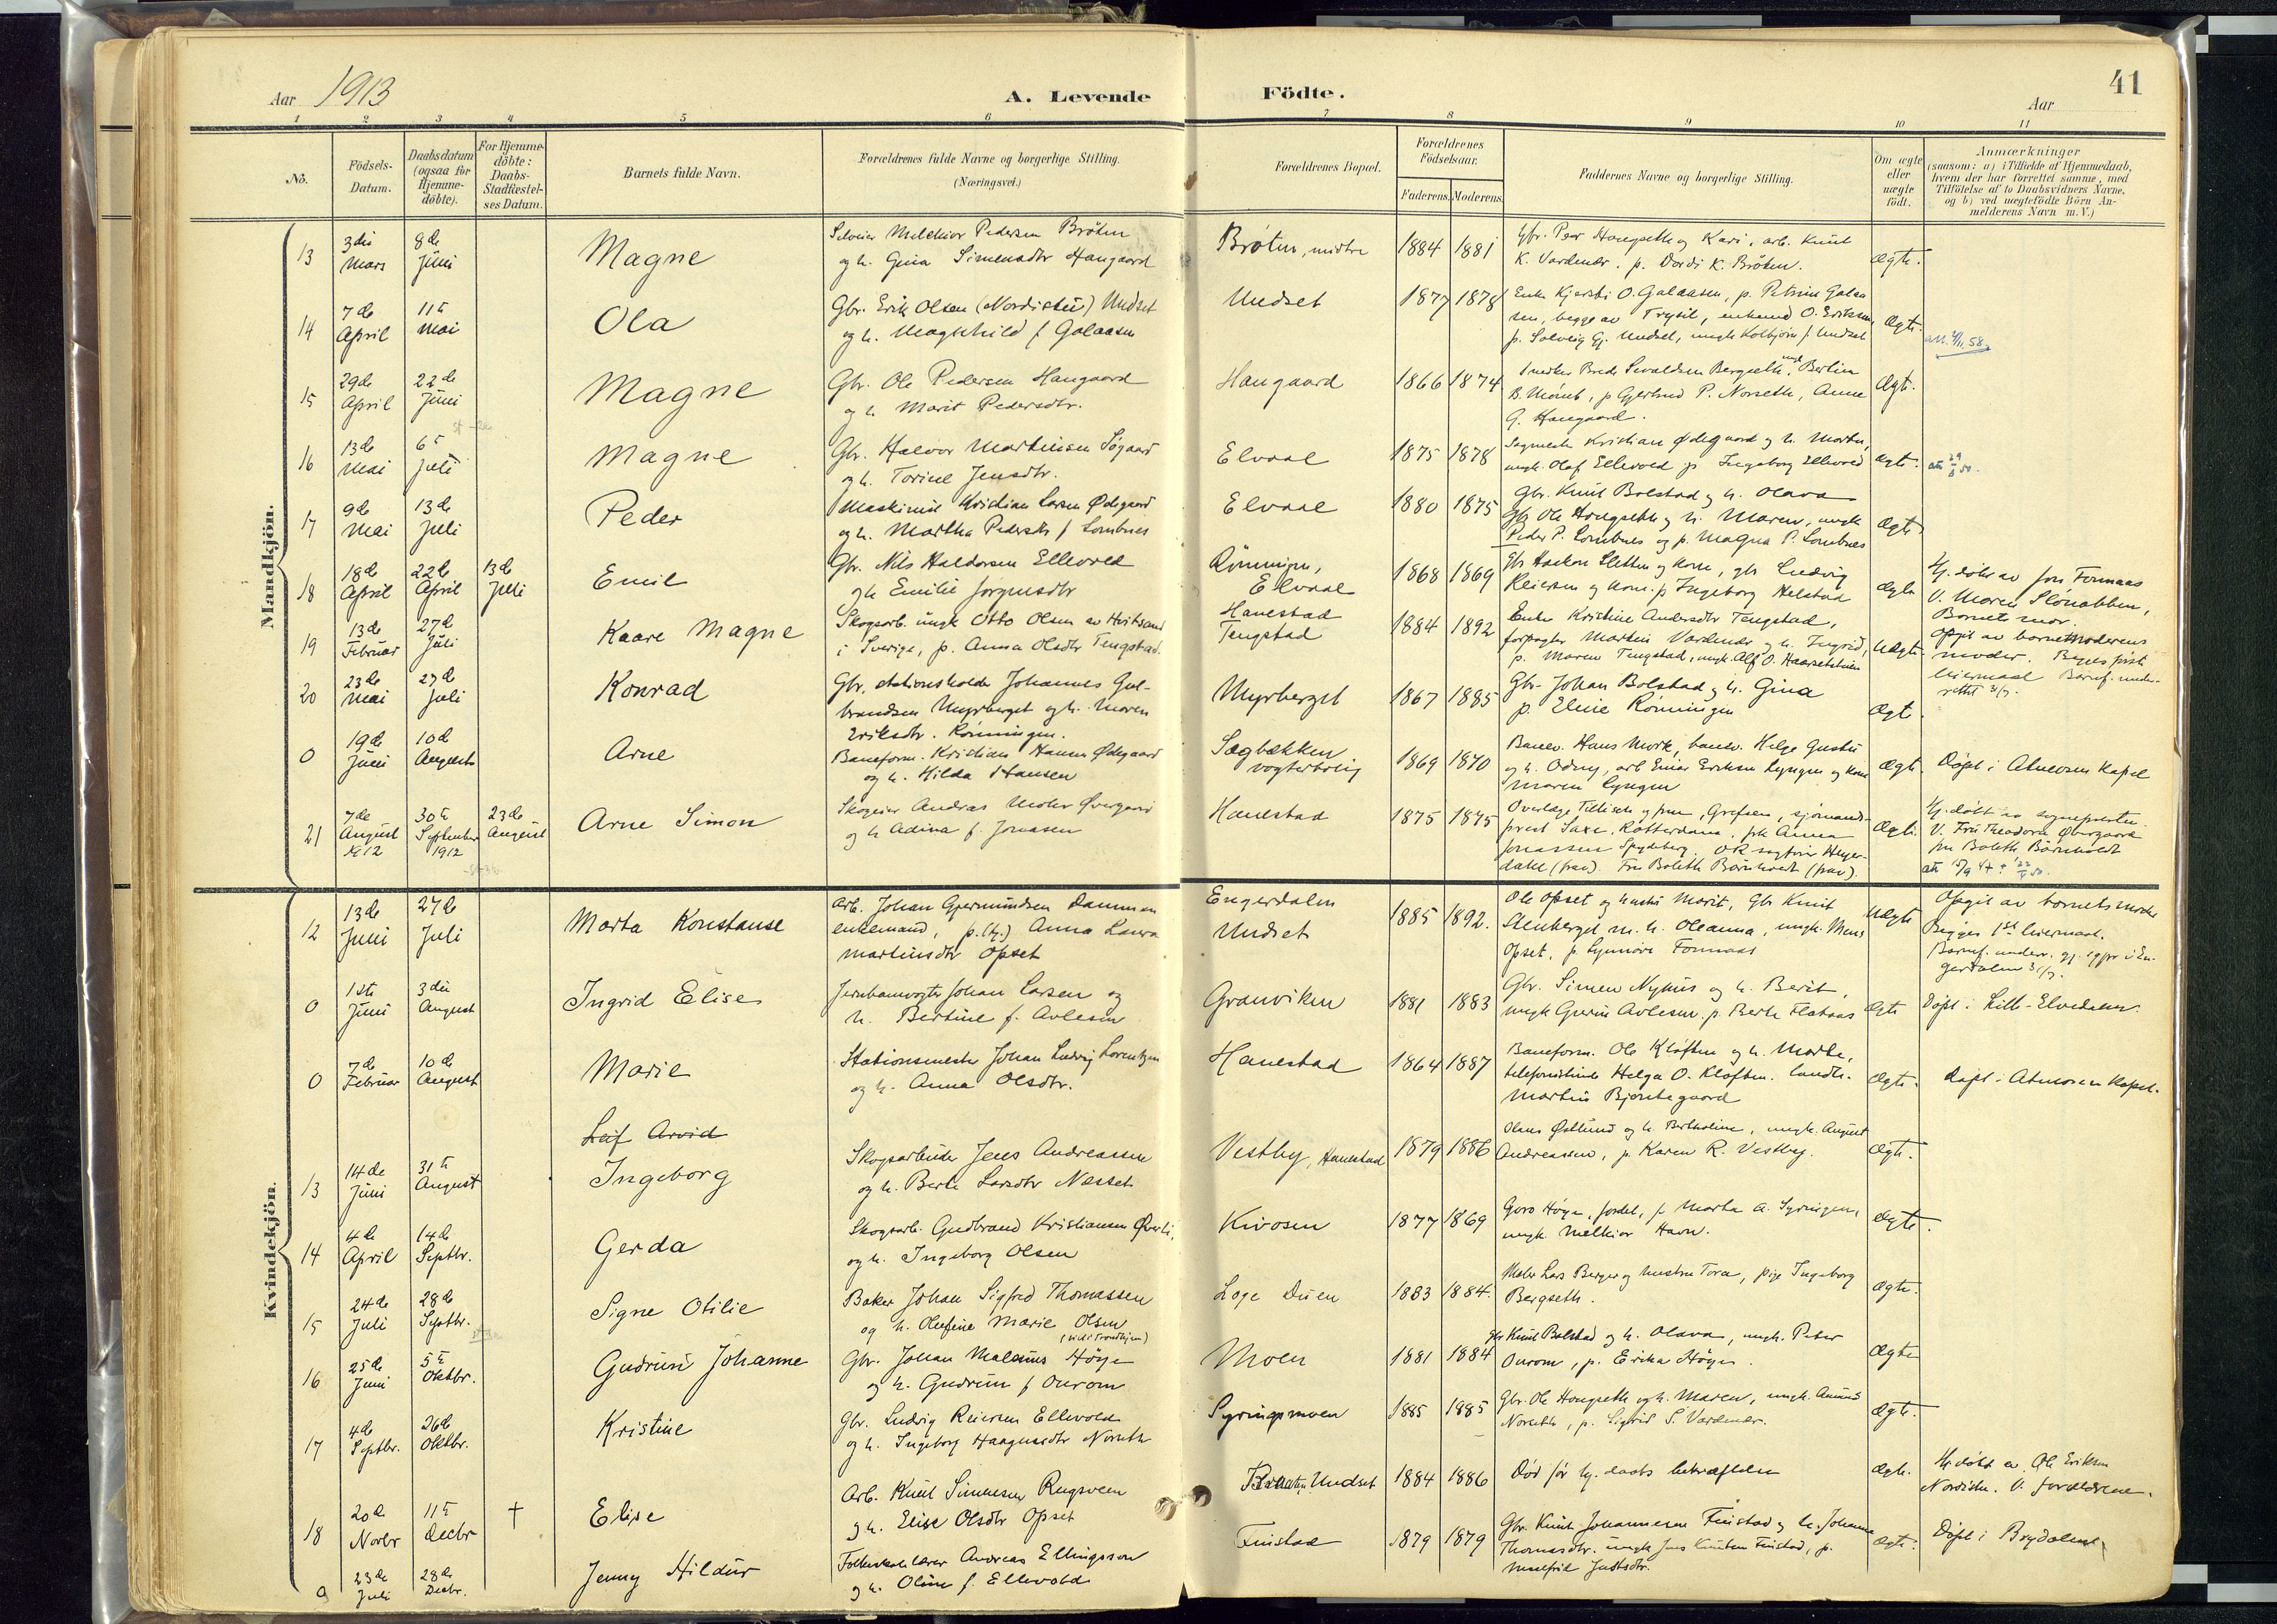 Aar 1913
A. Levende
Födte.
41
Aar
1 2 3 4 5 6 7 8 9 10 11
No.
Födsels-Datum.
Daabsdatum (ogsaa for Hjemmedöbte).
For Hjemmedöbte: Daabs-Stadfæstelses Datum.
Barnets fulde Navn.
Forældrenes fulde Navne og borgerlige Stilling. (Næringsvei.)
Forældrenes Bopæl.
Forældrenes Födselsaar.
Faderens. Moderens.
Faddernes Navne og borgerlige Stilling.
Om ægte eller uægte födt.
Anmærkninger
(saasom: a) i Tilfælde af Hjemmedaab, hvem der har forrettet samme, med Tilföielse af to Daabsvidners Navne, og b) ved uægtefödte Börn Anmelderens Navn m. V.)
Mandkjön.
13 3die Mars 8de Juni Magne
Selveier Melchior Pedersen Bröten
og h. Gina Simensdtr Haugaard
Bröten, midtre 1884 1881
Gbr. Peer Haugseth og Kari, arb. Knut
K. Vardenær, p. Dordi K. Bröten. Ægte.
14 7de April 11te Mai Ola
Gbr. Erik Olsen (Nordistu) Undset
og h. Magnhild f. Galaasen
Undset 1877 1878
Enke Kjersti O. Galaasen, p. Petrine Galaa
sen, begge av Trysil, enkemd O. Eriksen,
p. Solveig Gj. Undset, ungk Kolbjörn f. Undset Ægte.
15 29de April 22de Juni Magne
Gbr. Ole Pedersen Haugaard
og h. Marit Pedersdtr.
Haugaard 1866 1874
Snedker Brede Sivaldsen Bergseth, ungk Bertin
B. Mömb, p Gjertrud P. Norseth, Anne
G. Haugaard. Ægte.
16 13de Mai 6te Juli Magne
Gbr. Halvor Martinsen Sögaard
og h. Torine Jensdtr.
Elvaal 1875 1878
Sagmester Kristian Ødegaard og h. Martha,
ungk. Olaf Ellevold p. Ingeborg Ellevold Ægte.
17 9de Mai 13de Juli Peder
Maskinist Kristian Larsen Ødegaard
og h. Martha Pedersdtr f. Lombnes
Elvaal 1880 1875
Gbr. Knut Bolstad og h. Olava
Gbr Ole Haugseth og h. Maren, ungk
Peder P. Lombnes og p. Magna P. Lombnes Ægte
18 18de April 22de April 13de Juli Emil
Gbr. Nils Haldorsen Ellevold
og h Emilie Jörgensdtr
Rönningen, Elvaal 1868 1869
Gbr Haakon Sletten og Kone, gbr Ludvig
Reiersen og kone. p Ingeborg Helstad Ægte
Hj. döbt av Jon Formaas
V. Maren Slönabben,
Barnets mor.
19 13de Februar 27de Juli Kaare Magne
Skogsarb. ungk Otto Olsen av Hvitsand
i Sverige, p. Anna Olsdtr Tengstad.
Hanestad Tengstad 1884 1892
Enke Kristine Andersdtr Tengstad,
forpagter Martin Vardenær og h. Ingrid,
p. Maren Tengstad, ungk. Alf O. Haarsetstuen Uægte.
Opgit av barnemoderens
moder. Begges förste
leiermaal Barnef. under-
rettet 3/7.
20 23de Mai 27de Juli Konrad
Gbr, stationsholder Johannes Gul-
brandsen Myrberget og h. Maren
Eriksdtr. Rönningen.
Myrberget 1867 1885
Gbr. Johan Bolstad og h. Gina
p. Eline Rönningen Ægte.
0 19de Juni 10de August Arne
Baneform. Kristian Hansen Ødegaard
og h. Hilda Hansen
Sagbækken vogterbolig 1869 1870
Banev. Hans Mork, banev. Helge Gustu
og h. Odny, arb Einar Eriksen Lyngen og kone
Maren Lyngen Ægte. Döpt i Atneosen Kapel
21 7de August 1912 30te September 1912 23de August Arne Simon
Skogeier Andreas Moltke Övergaard
og h Adina f. Jonasen
Hanestad 1875 1875
Overlæge Tillisch og frue, Grefsen, sjömands-
prest Saxe, Rotterdam, frk Anna
Jonassen Spydeberg, OR sagförer Heyer-
dahl (frav.) Fru Boleth Börnholdt (frav). Ægte.
Hj. döbt av sognepresten.
V. Fru Theodora Övergaard
fru Boleth Börnholdt
Kvindekjön.
12 13de Juni 27de Juli Marta Konstanse
Arb. Johan Gjermundsen Dammen
enkemand, p. (tj.) Anna Laura
Martinsdtr Opset
Engerdalen Undset 1885 1892.
Ole Opset og hustru Marit, Gbr Knut
Stenberget m. h. Oleanna, ungk. Mons
Opset, p. Synnöve Formaas Uægte
Opgit av barnets moder
Begges 1ste leiermaal.
Barnef. underr. gj. sgpr i En-
gerdalen 3/7.
0 1ste Juni 3die August Ingrid Elise
Jernbanevogter Johan Larsen og
h. Bertine f. Avlesen
Granviken 1881 1883
Gbr. Simen Nyhus og h. Berit,
ungk Gjerin Avlesen. p. Berte Flataas Ægte
Döpt i Lille-Elvedalen.
0 7de Februar 10de August Marie
Stationsmester Johan Ludvig Lorentzen
og h. Anna Olsdtr.
Hanestad 1864 1887
Baneform. Ole Kloften og h. Marthe,
telefonistinde Helga O. Kloften. landh.
Martin Bjerkegaard Ægte. döpt i Atneosen Kapel.
Leif Arvid
13 14de Juni 31te August Ingeborg
Skogsarbeider Jens Andreassen
og h. Berte Larsdtr Næsset
Vestby, Hanestad 1879 1886
Olaus Østlund og h. Bertholine, ungk. August
Andreassen, p. Karen R. Vestby. Ægte.
14 4de April 14de Septbr. Gerda
Skogsarb. Gudbrand Kristiansen Øverli,
og h. Ingeborg Olsen
Kivosen 1877 1869
Guro Höye, fordel, p Marta A. Syringen,
ungk. Melkior Havn. Ægte.
15 24de Juli 28de Septbr. Signe Otilie
Baker Johan Sigfred Thomassen
og h. Olufine Marie Olsen
Loge Duen 1883 1884.
Maler Lars Berger og hustru Tora, pige Ingeborg
Bergseth. Ægte.
16 25de Juni 5te Oktbr. Gudrun Johanne
Gbr. Johan Malenius Höye
og h. Gudrun f Ourom
Moen 1881 1884
Gbr Knut Bolstad og h. Olava, ungk. Peter
Ourom, p. Erika Höye. Ægte
17 4de Septbr. 26de Oktbr. Kristine
Gbr. Ludvig Reiersen Ellevold
og h. Ingeborg Haagensdtr Norseth
Syringmoen 1885 1885
Gbr. Ole Haugseth og h. Maren, ungk. Amund
Norseth, p. Sigrid S. Vardenær. Ægte.
18 20de Novbr 11te Decbr † Elise
Arb. Knut Simensen Rugsveen
og h. Elise Olsdtr Opset
Braaten, Undset 1884 1886
Död för hj. daabs bekræftelse Ægte.
Hj. döbt av Ole Eriksen
Nordistu. V. forældrene.
0 23de Juli 28de Decbr. Jenny Hildur
Folkeskolelærer Andreas Ellingsson
og h. Oline f. Ellevold
Finstad 1879 1879
Gbr. Knut Johannesen Finstad og h. Johanne
Thomasdtr. ungk Jens Knutsen Finstad, p.
Malfrid Justsdtr. Ægte. Döpt i Brydalen